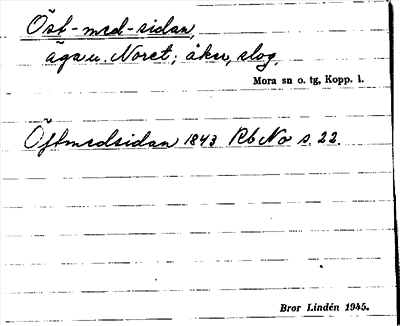 Öst-med-sidan,
äga u. Noret; åker, slog.
Mora sn o. tg, Kopp. l.
Öftmedsidan 1843 Rb No s. 22.
Bror Lindén 1945.